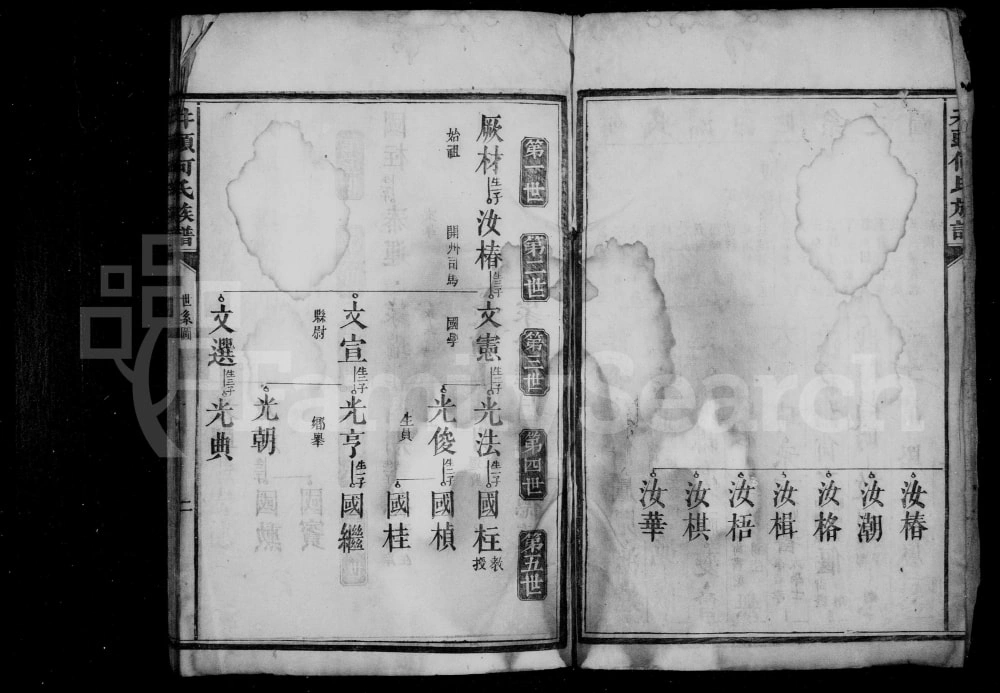 汝椿
汝潮
汝格
汝楫
汝梧
汝棋
汝華
第一世
第二世
第三世
第四世
第五世
厥材
始祖
生一子
汝椿
開州司馬
生三子
文憲
國學
生二子
光法
生一子
國柱
教授
光俊
生員
生二子
國楨
國桂
文宣
縣尉
生二子
光亨
鄉舉
生一子
國繼
光朝
文選
生三子
光典
井頭何氏族譜
世系圖
二
FamilySearch